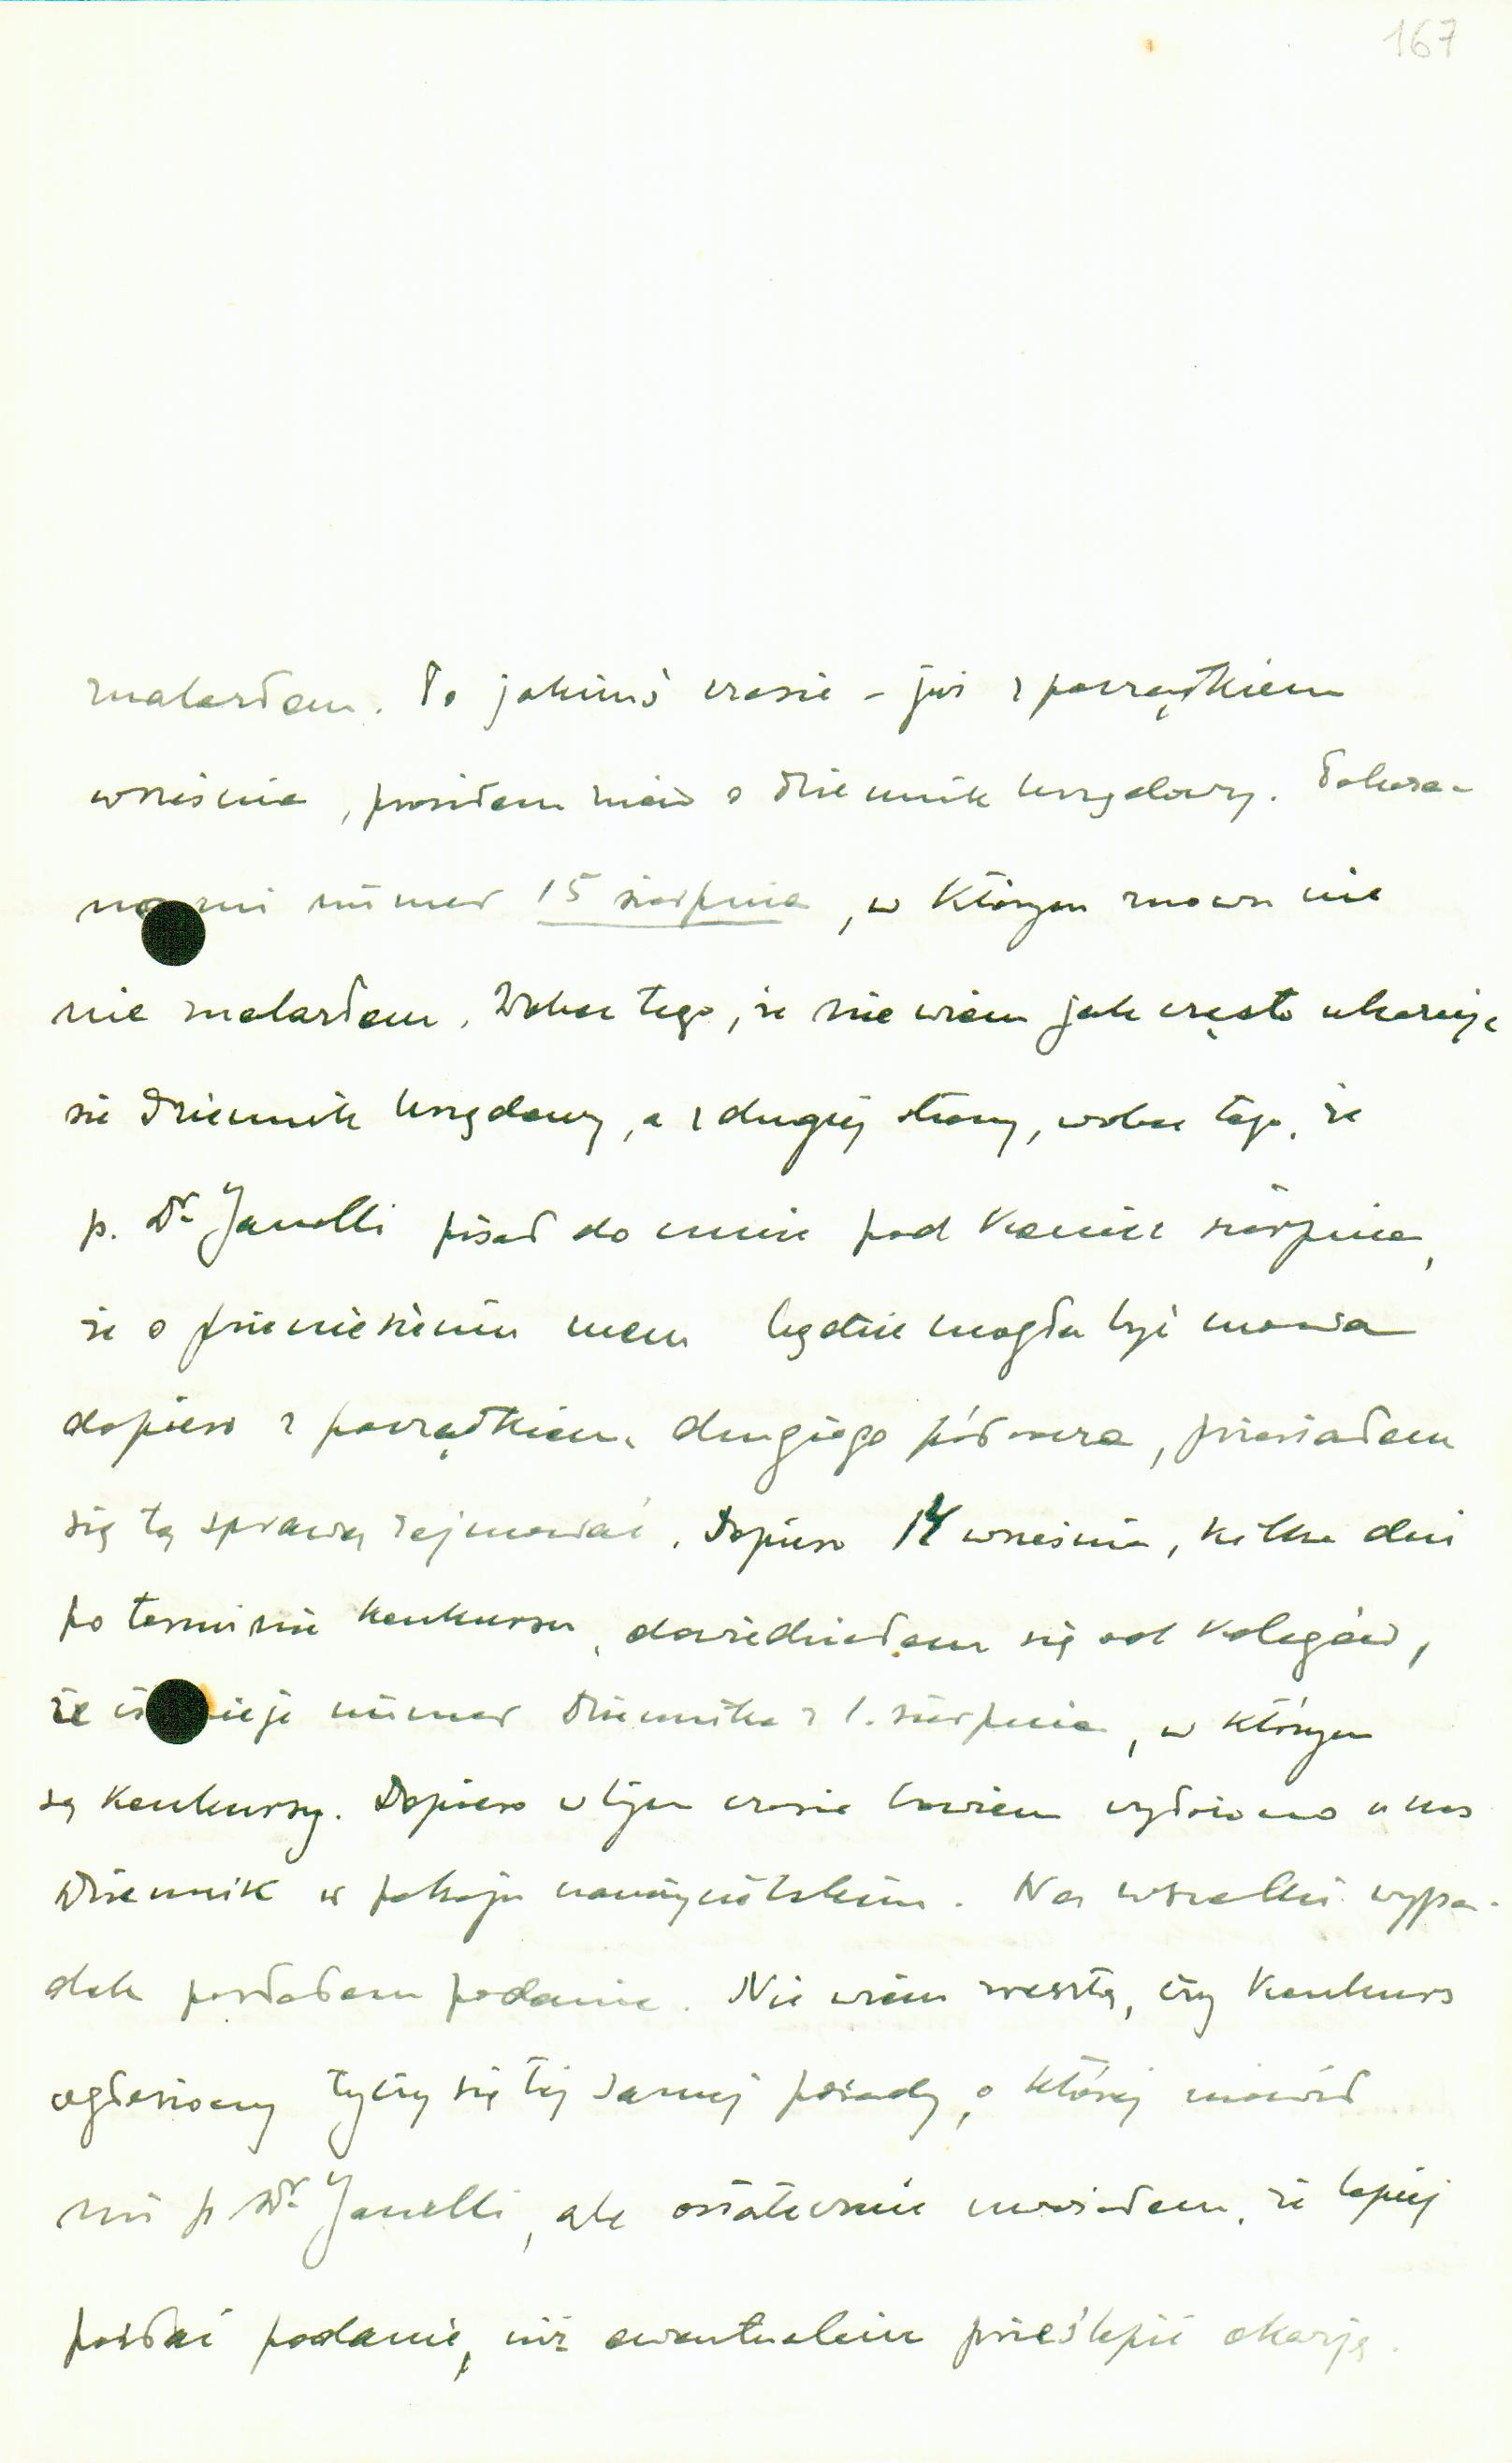 167
znalazłem. Po jakimś czasie – już z początkiem
września, prosiłem znów o Dziennik Urzędowy. Pokaza-
no mi numer 15 sierpnia, w którym znowu nic
nie znalazłem. Wobec tego, że nie wiem jak często ukazuje
się Dziennik Urzędowy, a z drugiej strony, wobec tego, że
p. Dr Janelli pisał do mnie pod koniec sierpnia,
że o przeniesieniu mem będzie mogła być mowa
dopiero z początkiem drugiego półrocza, przestałem
się tą sprawą zajmować. Dopiero 14 września, kilka dni
po terminie konkursu, dowiedziałem się od kolegów,
że istnieje numer Dziennika z 1. sierpnia, w którym
są konkursy. Dopiero w tym czasie bowiem wyłożono u nas
Dziennik w pokoju nauczycielskim. Na wszelki wypa-
dek posłałem podanie. Nie wiem zresztą, czy konkurs
ogłoszony tyczy się tej samej posady, o której mówił
mi p Dr Janelli, ale ostatecznie uważałem, że lepiej
posłać podanie, niż ewentualnie prześlepić okazję.